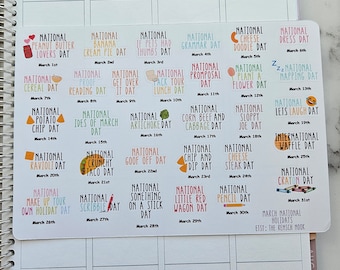 NATIONAL PEANUT BUTTER LOVERS DAY
March 1st
NATIONAL BANANA CREAM PIE DAY
March 2nd
NATIONAL IF PETS HAD THUMBS DAY
March 3rd
NATIONAL GRAMMAR DAY
March 4th
NATIONAL CHEESE DOODLE DAY
March 5th
NATIONAL DRESS DAY
March 6th
NATIONAL CEREAL DAY
March 7th
NATIONAL
DAY
March 8th
NATIONAL GET OVER IT DAY
March 9th
NATIONAL PACK YOUR LUNCH DAY
March 10th
NATIONAL PROMPOSAL DAY
March 11th
NATIONAL PLANT A FLOWER DAY
March 12th
NATIONAL NAPPING DAY
March 13th
NATIONAL POTATO CHIP DAY
March 14th
NATIONAL IDES OF MARCH DAY
March 15th
NATIONAL ARTICHOKE DAY
March 16th
NATIONAL CORN BEEF AND CABBAGE DAY
March 17th
NATIONAL SLOPPY JOE DAY
March 18th
NATIONAL LET'S LAUGH DAY
March 19th
NATIONAL RAVIOLI DAY
March 20th
NATIONAL CRUNCHY TACO DAY
NATIONAL GOOF OFF DAY
March 22nd
NATIONAL CHIP AND DIP DAY
March 23rd
NATIONAL CHEESE STEAK DAY
March 24th
INTERNATIONAL WAFFLE DAY
March 25th
NATIONAL MAKE UP YOUR OWN HOLIDAY DAY
March 26th
NATIONAL SCRIBBLE DAY
March 27th
NATIONAL SOMETHING ON A STICK DAY
March 28th
NATIONAL LITTLE RED WAGON DAY
March 29th
NATIONAL PENCIL DAY
March 30th
NATIONAL CRAYON DAY
March 31st
MARCH NATIONAL HOLIDAYS
ETSY: THE REMSEN NOOK